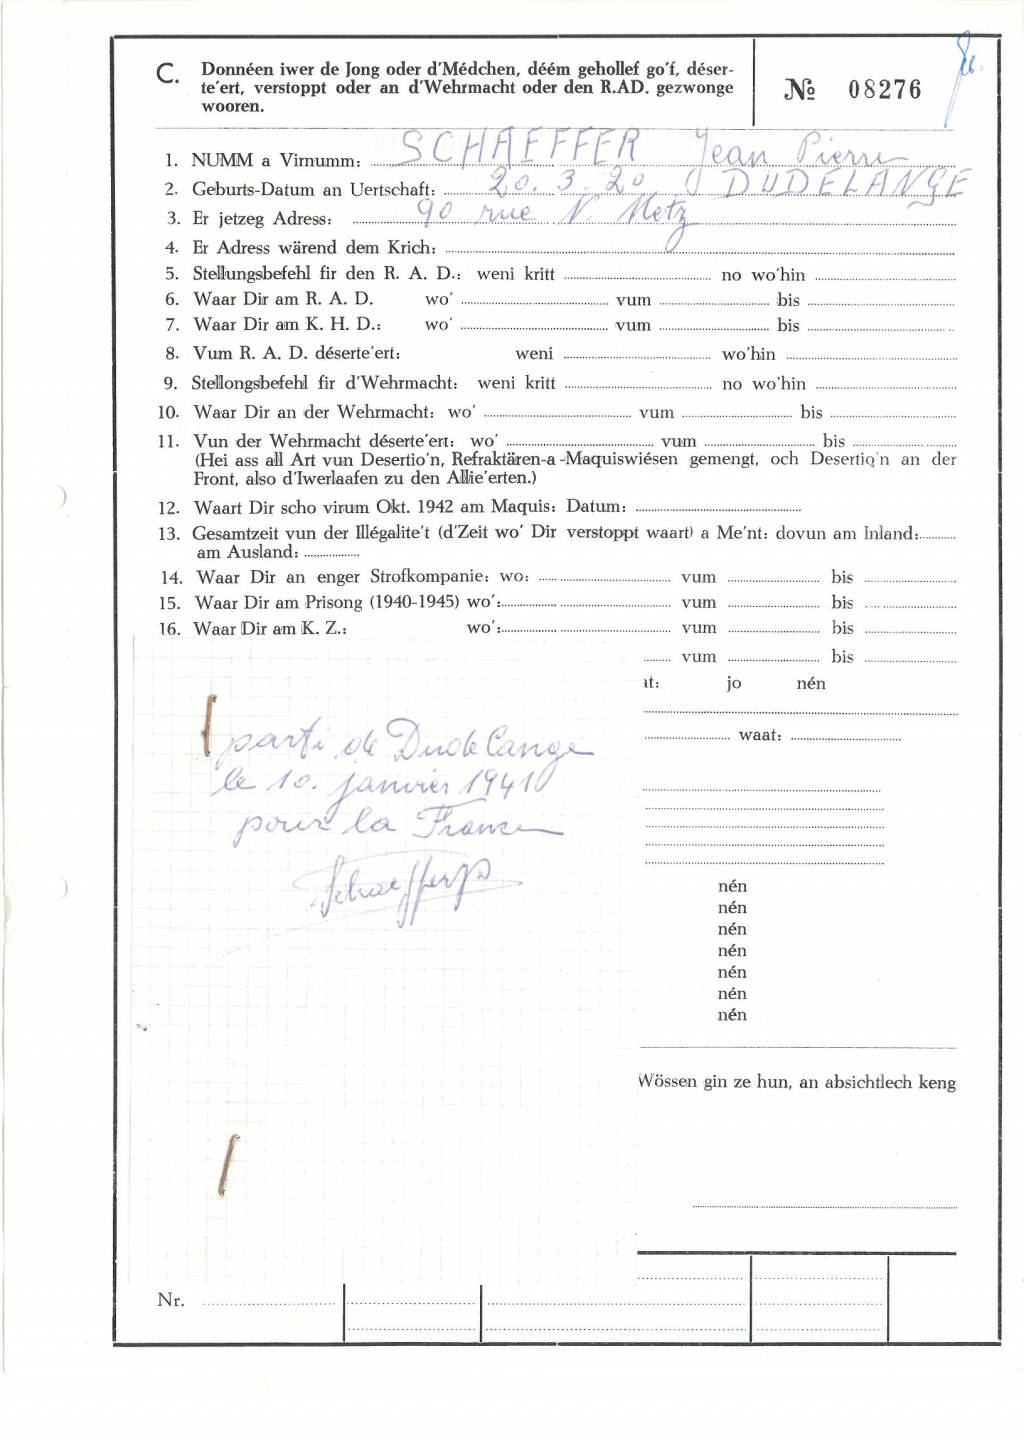 C. Donnéen iwer de Jong oder d'Médchen, déém gehollef go'f, déser-
te'ert, verstoppt oder an d'Wehrmacht oder den R.AD. gezwonge
wooren.
№ 08276
1. NUMM a Virnumm: SCHAEFFER Jean Pierre
2. Geburts-Datum an Uertschaft: 20.3.20 DUDELANGE
3. Er jetzeg Adress: 90 rue N. Metz
4. Er Adress wärend dem Krich:
5. Stellungsbefehl fir den R. A. D.: weni kritt no wo'hin
6. Waar Dir am R. A. D. wo' vum bis
7. Waar Dir am K. H. D.: wo' vum bis
8. Vum R. A. D. déserte'ert: weni wo'hin
9. Stellongsbefehl fir d'Wehrmacht: weni kritt no wo'hin
10. Waar Dir an der Wehrmacht: wo' vum bis
11. Vun der Wehrmacht déserte'ert: wo' vum bis
(Hei ass all Art vun Desertio'n, Refraktären-a-Maquiswiésen gemengt, och Desertio'n an der
Front, also d'Iwerlaafen zu den Allie'erten.)
12. Waart Dir scho virum Okt. 1942 am Maquis: Datum:
13. Gesamtzeit vun der Illégalite't (d'Zeit wo' Dir verstoppt waart) a Me'nt: dovun am Inland:
am Ausland:
14. Waar Dir an enger Strofkompanie: wo: vum bis
15. Waar Dir am Prisong (1940-1945) wo': vum bis
16. Waar Dir am K. Z.: wo': vum bis
vum bis
at: jo nén
parti de Dudelange
waat:
le 10. janvier 1941
pour la France
Schaeffer JP
nén
nén
nén
nén
nén
nén
nén
Wössen gin ze hun, an absichtlech keng
Nr.